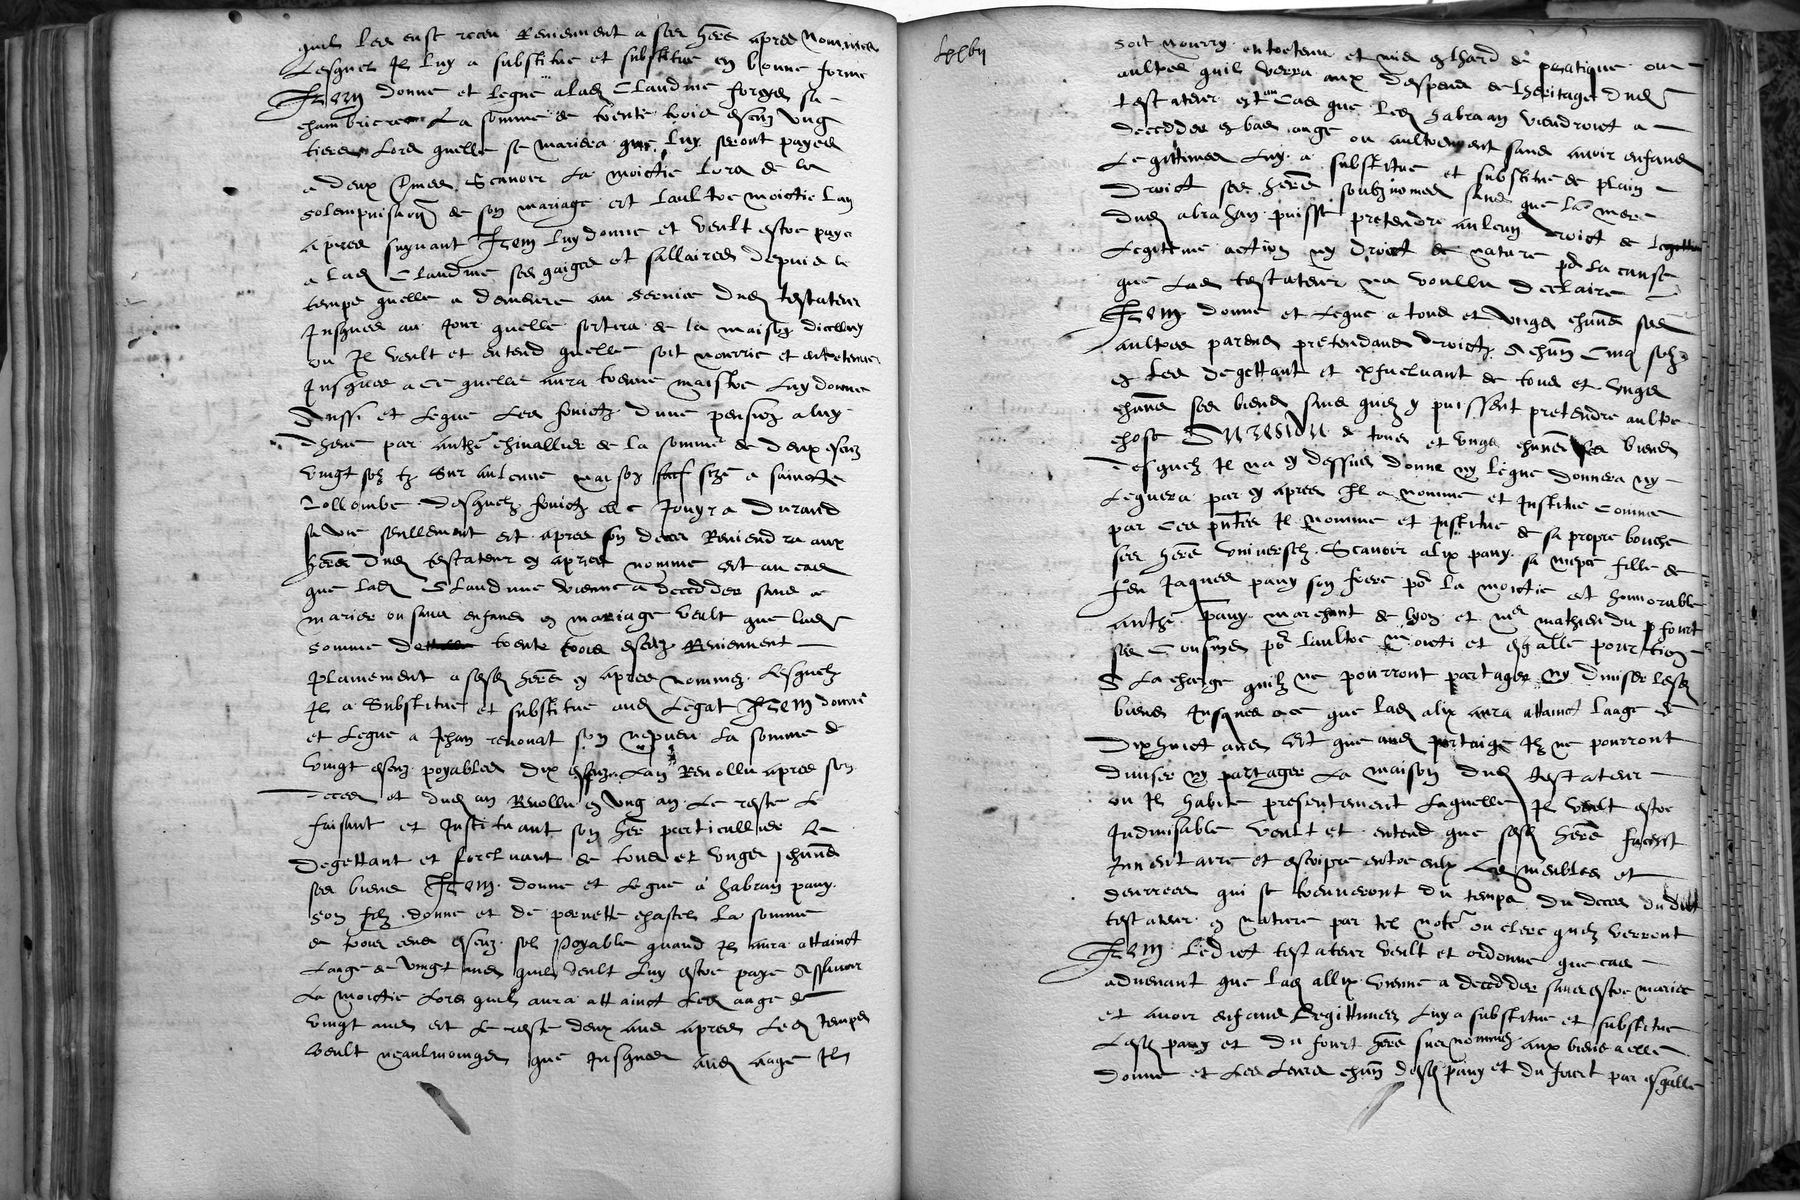 quil les eust receu Reviennent a ses hers apres nommes
Lesquels Il luy a substitue et substitue en bonne forme
Item donne et legue a lad Claudine forges sa
chambriere La somme de trente trois escuz ung
tiers Lors quelle se mariera que luy seront payes
a deux Scavoir La moictie lors de la
de son mariage et laultre moictie lan
apres suyvant Item luy donne et veult estre paye
a lad Claudine ses gaiges et sallaires depuis le
temps quelle a demeure au service dud testateur
Jusques au Jour quelle sortira de la maison dicelluy
ou Il veult et entend quelle soit nourrie et entretenue
Jusques a ce quelle aura treuve maistre Luy donne
Aussi et Legue Les fruictz dune pension a luy
dheue par anthe chivallier de la somme de deux escuz
vingt solz tz Sur aulcune maison size a saincte
Collombe desquelz fruictz elle Jouyra Durand
sa vie seullement et apres son deces Reviendra aux
hers dud testateur cy apres nomme et au cas
que lad Claudine vienne a decedder sans se
marier ou sans enfans en mariage veult que lad
somme de trente trois escuz Reviennent
plainement a sesd hers cy apres nommez Lesquelz
Il a Substitue et substitue aud Legat Item donne
et Legue a Jehan renouat son nepveu La somme de
vingt escuz payables dix escuz Lan Revollu apres son
deces et dud an Revollu en ung an Le reste Le
faisant et Instituant son her particullier Le
degettant et forcluant de tous et ungs chuns
ses biens Item donne et Legue a habram pany
son filz donne et de pernette chastel La somme
de trois cens escuz sol Payable quand Il aura attainct
Laage de vingt ans quil veult Luy estre paye Assavoir
La moictie Lors quil aura attainct Led aage de
vingt ans et Le reste deux ans apres Led temps
veult neaulmoings que Jusques aud aage Il
Lxxbii
soit nourry entretenu et mis de pratique ou
aultres quil verra aux despens de lheritage dud
testateur et cas que led habraan viendroict a
decedder en bas aage ou aultrement sans avoir enfans
Legittimes Luy a substitue et substitue de plain
droict ses hers soubz nomes sans que la mere
dud abrahan puisse pretendre aulcun droict de
Legitime action ny droict de nature po la cause
que Led testateur na voullu declaire
Item donne et Legue a tous et ungs chuns ses
aultres parens pretendans droictz A chun Cinq solz
en les degettant et excluant de tous et ungs
chuns ses biens sans quilz y puissent pretendre aultre
chose AURESIDU de tous et ungs chuns ses biens
desquelz Il na cy dessus donne ny legue donnera ny
Leguera par cy apres Il a nomme et Institue comme
par ces pntes Il nomme et Institue de sa propre bouche
ses hers universelz Scavoir alix pany sa niepce fille de
feu Jaques pany son frere po la moictie et honnorable
anthe pany marchant de lyon et me mathieu du fourt
ses Cousins po laultre moicti et esgalle pourtion
A La charge quilz ne pourront partager ny diviser lesd
biens Jusques a ce que lad alix aura attainct laage de
dixhuict ans Et que aud partaige Ilz ne pourront
diviser ny partager La maison dud testateur
ou Il habite presentement Laquelle Il veult estre
Indivisable veult et entend que sesd hers facent
Inventaire et escripre entre eulx Les meubles et
denrees qui se treuveront du temps du deces dudict
testateur en nature par tel notre ou clerc quilz verront
Item Ledict testateur veult et ordonne que cas
advenant que lad allix vienne a decedder sans estre mariee
et avoir enfans Legittimes Luy a substitue et substitue
Lesd pany et du fourt hers susnommes aux biens a elle
donne et Les Leurs chun desd pany et du fourt par esgalle